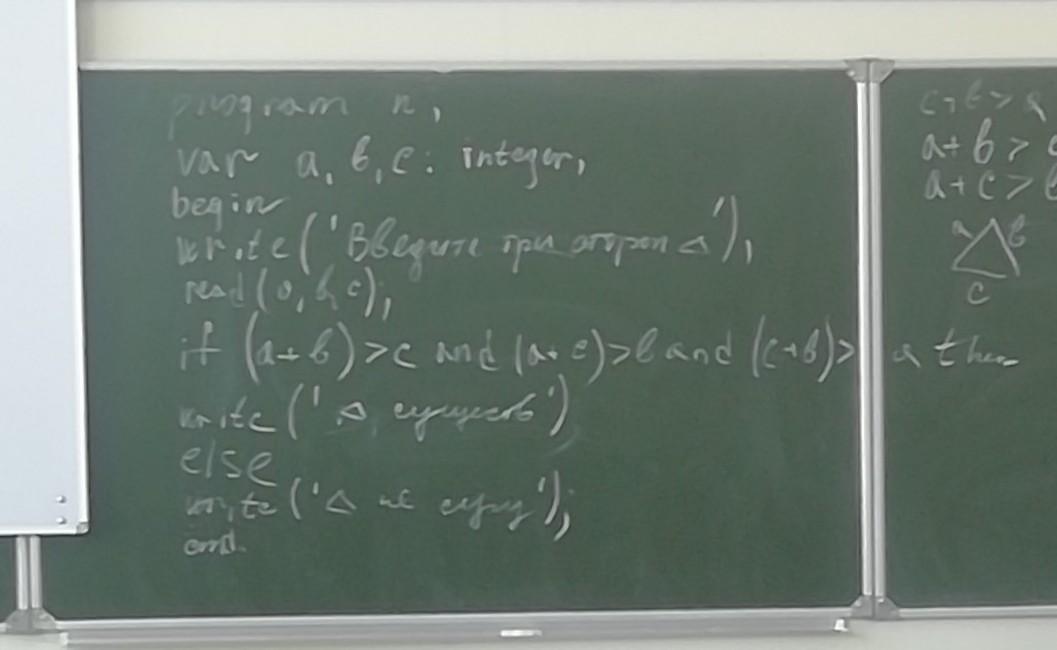 program n;
var a, b, c: integer;
begin
write('Введите три сторон △');
read(a, b, c);
if (a+b)>c and (a+c)>b and (c+b)>a then
write('△ существ')
else
write('△ не сущ');
end.
c+b>a
a+b>c
a+c>b
a b
c